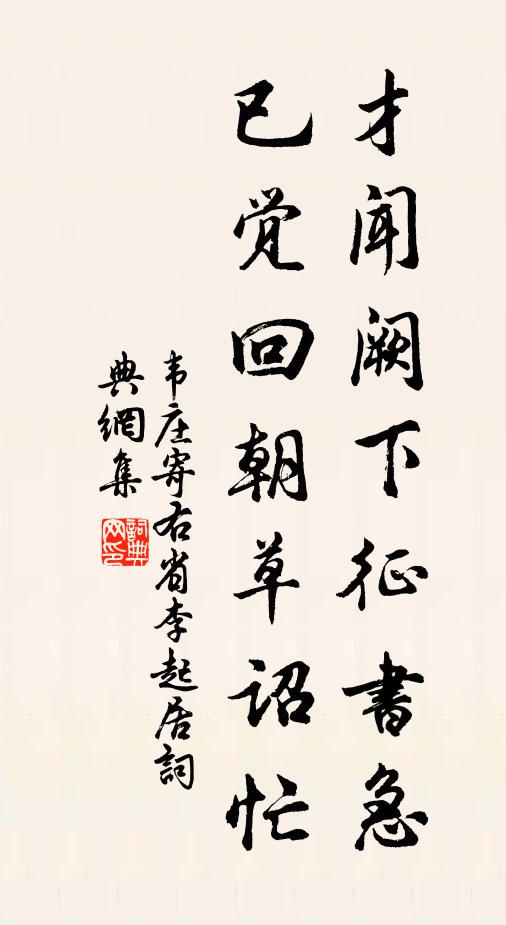 才闻阙下征书急
已觉回朝草诏忙
韦庄寄右省李起居詞
典網集
詞典网印